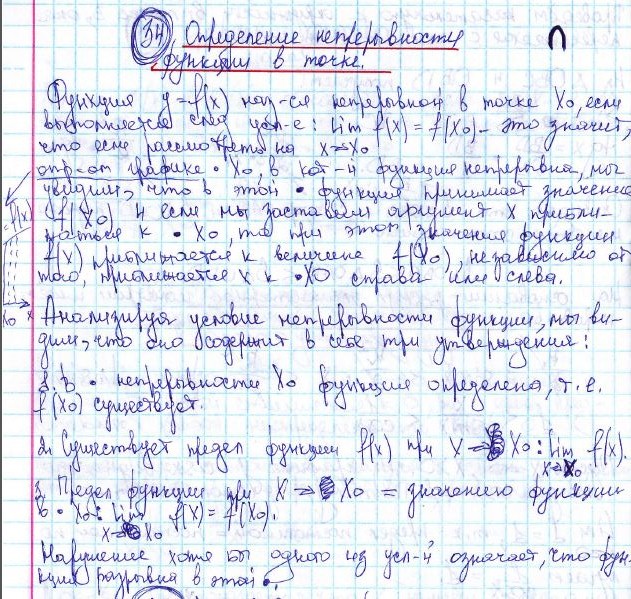 34 Определение непрерывности
функции в точке.
Функция y=f(x) наз-ся непрерывной в точке X₀, если
выполняется след усл-е: lim f(x) = f(X₀) - это значит,
что если рассмотреть на X→X₀
графике • X₀, в кот-й функция непрерывна, мы
увидим, что в этой • функция принимает значение
f(X₀) И если мы заставим аргумент X прибли-
жаться к • X₀, то при этом значения функции
f(X) приближается к величине f(X₀), независимо от
того, приближается X к •X0 справа или слева.
=f(x)
X₀ x
Анализируя условие непрерывности функции, мы ви-
дим, что оно содержит в себе три утверждения:
1. В • непрерывности X₀ функция определена, т.е.
f(X₀) существует.
2. Существует предел функции f(x) при X → X₀: lim f(x).
X→X₀
3. Предел функции при X → X₀ = значению функции
в • X₀: lim f(X) = f(X₀).
X→X₀
Нарушение хотя бы одного из усл-й означает, что фун-
кция разрывна в этой •.